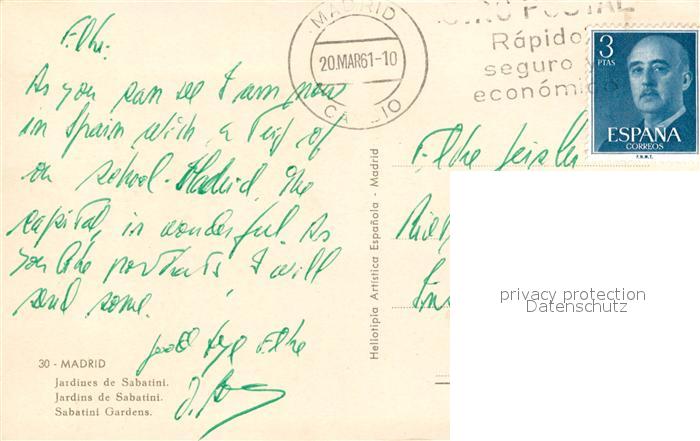 MADRID
20.MAR61-10
GIRO POSTAL
Rápido,
seguro y
económico
3
PTAS
ESPAÑA
CORREOS
F.N.M.T.
Elke.
As you can see I am now
in Spain with a of
school. Madrid, the
capital, is wonderful. As
you like I will
send some.
Elke
Elke
Heliotipia Artística Española - Madrid
privacy protection
Datenschutz
30 - MADRID
Jardines de Sabatini.
Jardins de Sabatini.
Sabatini Gardens.